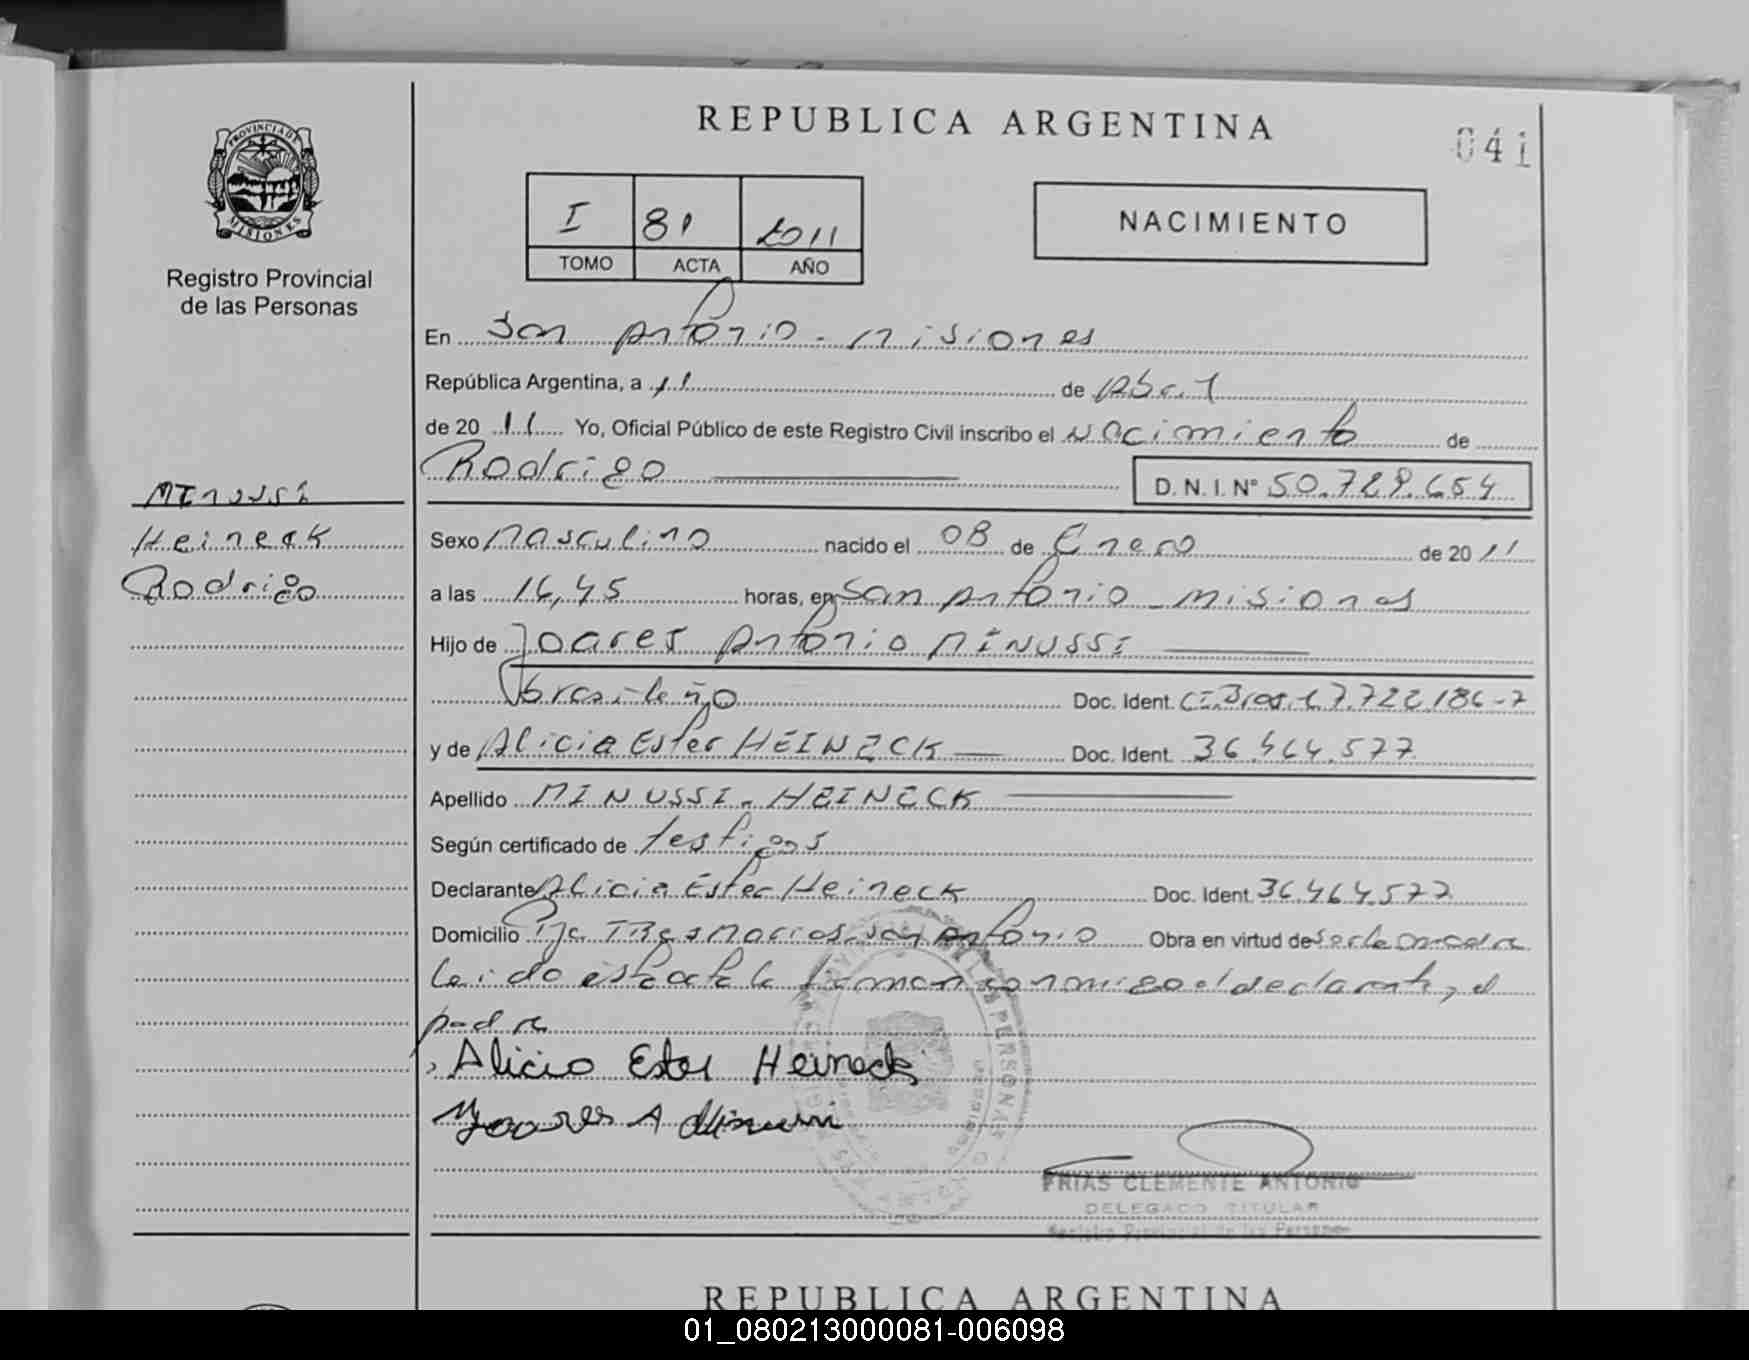 REPUBLICA ARGENTINA
041
PROVINCIA DE
MISIONES
Registro Provincial
de las Personas
I 81 2011
TOMO ACTA AÑO
NACIMIENTO
En San Antonio - Misiones
República Argentina, a 11 de Abril
de 20 11 Yo, Oficial Público de este Registro Civil inscribo el Nacimiento de
Rodrigo D.N.I. Nº 50.789.654
Minussi
Heineck
Rodrigo
Sexo Masculino nacido el 08 de Enero de 2011
a las 16,45 horas, en San Antonio - Misiones
Hijo de Joares Antonio MINUSSI
brasileño Doc. Ident.
y de Alicia Ester HEINECK Doc. Ident. 36.464.577
Apellido MINUSSI - HEINECK
Según certificado de testigos
Declarante Alicia Ester Heineck Doc. Ident. 36.464.577
Domicilio Pje Tres Marias San Antonio Obra en virtud de ser la madre
leida esta acta la firman conmigo el declarante, el
padre
Alicia Ester Heineck
Joares A Minussi
FRIAS CLEMENTE ANTONIO
DELEGADO TITULAR
Registro Provincial de las Personas
REPUBLICA ARGENTINA
01_080213000081-006098